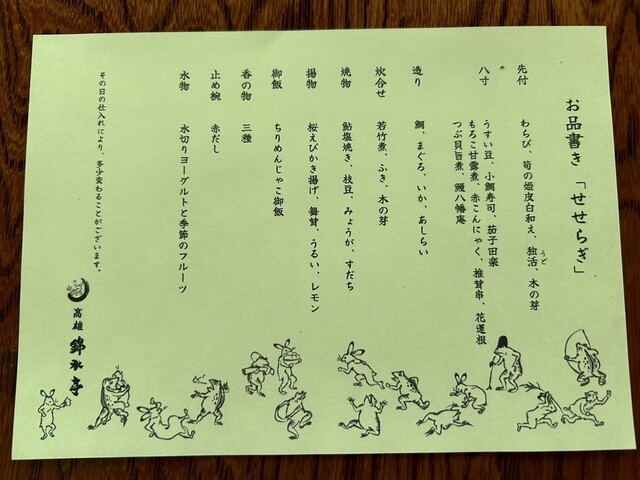 お品書き「せせらぎ」
先付　わらび、筍の姫皮白和え、独活、木の芽
うど
八寸　うすい豆、小鯛寿司、茄子田楽
もろこ甘露煮、赤こんにゃく、椎茸串、花蓮根
つぶ貝旨煮、鰻八幡庵
造り　鯛、まぐろ、いか、あしらい
炊合せ　若竹煮、ふき、木の芽
焼物　鮎塩焼き、枝豆、みょうが、すだち
揚物　桜えびかき揚げ、舞茸、うるい、レモン
御飯　ちりめんじゃこ御飯
香の物　三種
止め椀　赤だし
水物　水切りヨーグルトと季節のフルーツ
その日の仕入れにより、多少変わることがございます。
高雄　錦水亭